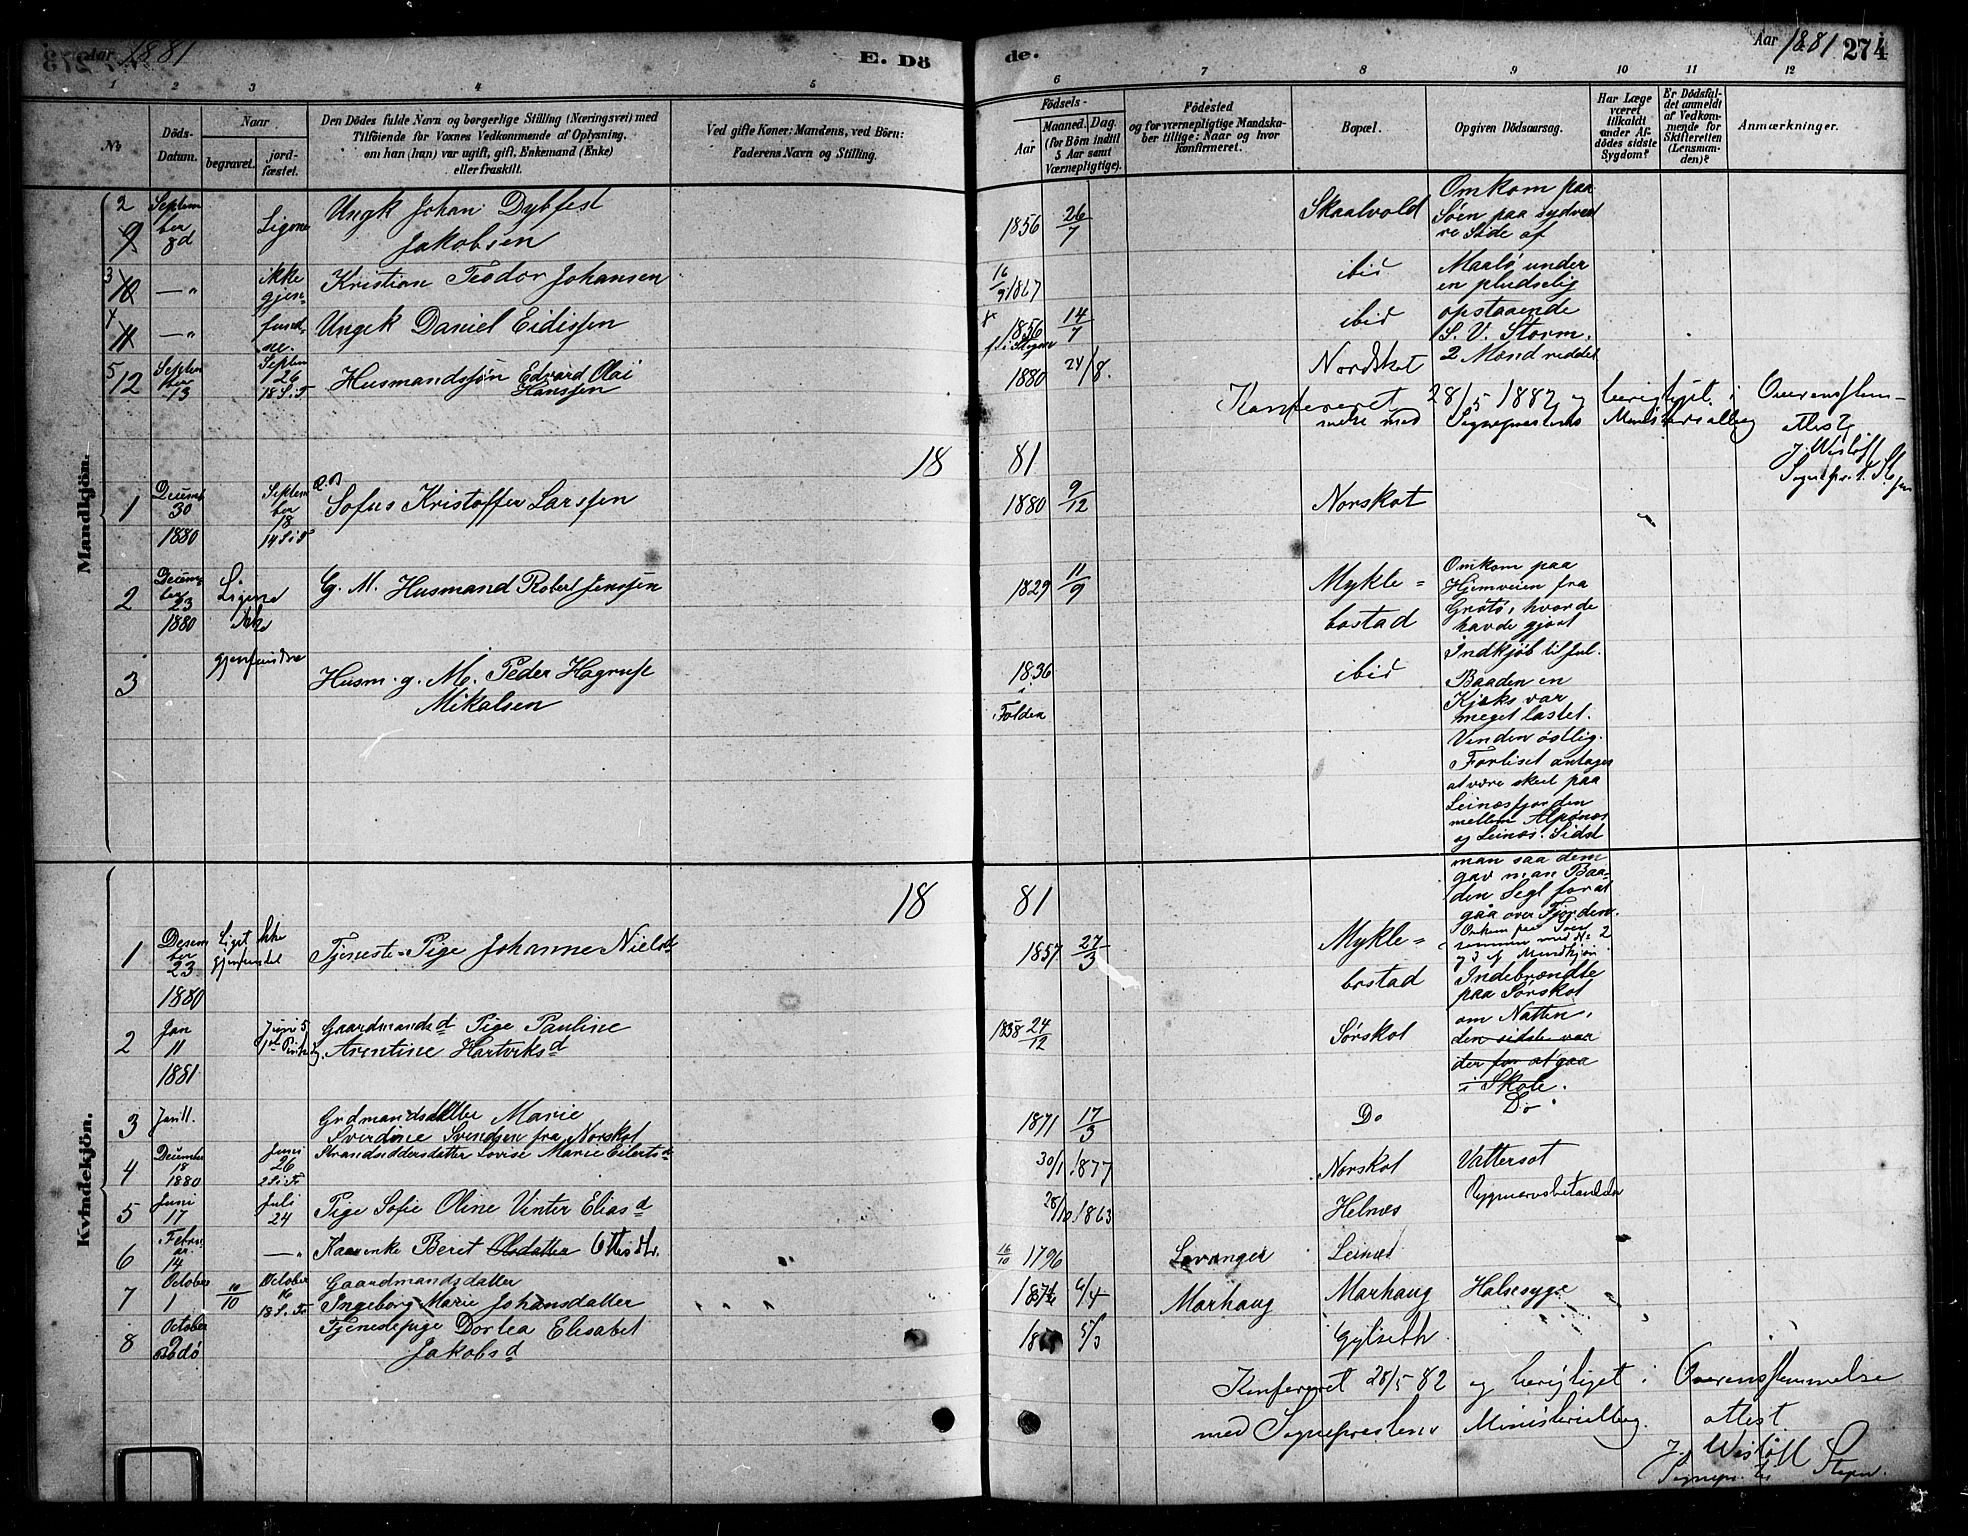 Aar 1881
E. Dö
de.
Aar 1881
274
1 2 3 4 5 6 7 8 9 10 11 12
No
Döds-
Datum.
Naar
begravet.
jord-
fæstet.
Den Dödes fulde Navn og borgerlige Stilling (Næringsvei) med
Tilföiende for Voxnes Vedkommende af Oplysning,
om han (hun) var ugift, gift, Enkemand (Enke)
eller fraskilt.
Ved gifte Koner: Mandens, ved Börn:
Faderens Navn og Stilling.
Födsels-
Aar
Maaned. Dag.
(for Börn indtil
5 Aar samt
Værnepligtige).
Födested
og for værnepligtige Mandska-
ber tillige: Naar og hvor
konfirmeret.
Bopæl.
Opgiven Dödsaarsag.
Har Læge
været
tilkaldt
under Af-
dödes sidste
Sygdom?
Er Dödsfal-
det anmeldt
af Vedkom-
mende for
Skifteretten
(Lensman-
den)?
Anmærkninger.
Mandkjön.
2
9
Septem
ber
8d
Ligene
Ungk Johan Dybfest
Jakobsen
1856 26/7
Skaalvold
Omkom paa
Söen paa sydvest
re Side af
3
10
—"
ikke
gjen-
Kristian Teodor Johansen
16/9 1867
ibid
Maalö under
en pludselig
11
—"
fund-
ne.
Ungk Daniel Eidissen
1856 14/7
ibid
opstaaende
S. V. Storm.
5
12
Septem
ber
13
Septem
26
18 S. T
Husmandssøn Edvard Olai
Hanssen
1880 24/8.
Nordskot
2 Mænd reddet
Konfereret 28/5 1882 og berigtiget i Overensstem-
melse med Sognepræstens Ministerialbog
attest
J. Wisløff
18 81
1
Decemb
30
1880
Septem
ber
18
14 S. i T
Sofus Kristoffer Larssen
1880 9/12
Norskot
2
Decem-
ber
23
1880
Ligene
ikke
G. M. Husmand Robert Jenssen
1829 11/9
Mykle=
bostad
Omkom paa
Hjemveien fra
Grøtø, hvor de
havde gjort
Indkjøb til Jul.
3
gjenfundne
Husm. g. M. Peder Hagrup
Mikalsen
1836
i
Folden
ibid
Baaden en
Kjæks var
meget lastet.
Vinden østlig.
Forliset antages
at være skeet paa
Leinesfjorden
mellem Alpønes
og Leines. Sidst
man saa dem
gav man Baa-
den Segl for at
gaa over Fjorden.
18 81
Kvindekjön.
1
Desem
ber
23
1880
Liget ikke
gjenfundet
Tjeneste=Pige Johanne Nielsd
1857 27/3
Mykle=
bostad
sammen med No 2
og 3 af Mandkjøn
2
Jan
11
1881
Juni 5
Gaardmandsd Pige Pauline
Arentine Hartviksd
1858 24/12
Sørskot
Indebrændte
paa Sørskot
om Natten,
den sidste var
der for at gaa
i Skole.
3
Jan 11.
Grdmandsdatter Marie
Sverdine Svendsen fra Norskot
1871 17/3
Do
Do
4
December
18
1880
Juni
26
2 S. i T
Strandsidderdatter Lovise Marie Eilertsd
30/1 1877
Norskot
Vattersot
5
Juni
17
Juli
24
Pige Sofie Oline Vinter Eliasd
28/10 1863
Helnes
6
Febru-
ar
14
—"
Kaarenke Beret Olsdatter Ottisdtr.
16/10 1796
Levanger
Leines
7
October
1
10/10
October
16
18 S. Tr
Gaardmandsdatter
Ingeborg Marie Johansdatter
1874 6/4
Marhaug
Marhaug
Halsesyge
8
October
9
Bodø
Tjenestepige Dortea Elisabet
Jakobsd
5/3
Gylseth
Konfereret 28/5 82 og berigtiget i Overensstemmelse
med Sognepræstens Ministerialbog.
attest
J. Wisløff
Sognepr. til Stegen.